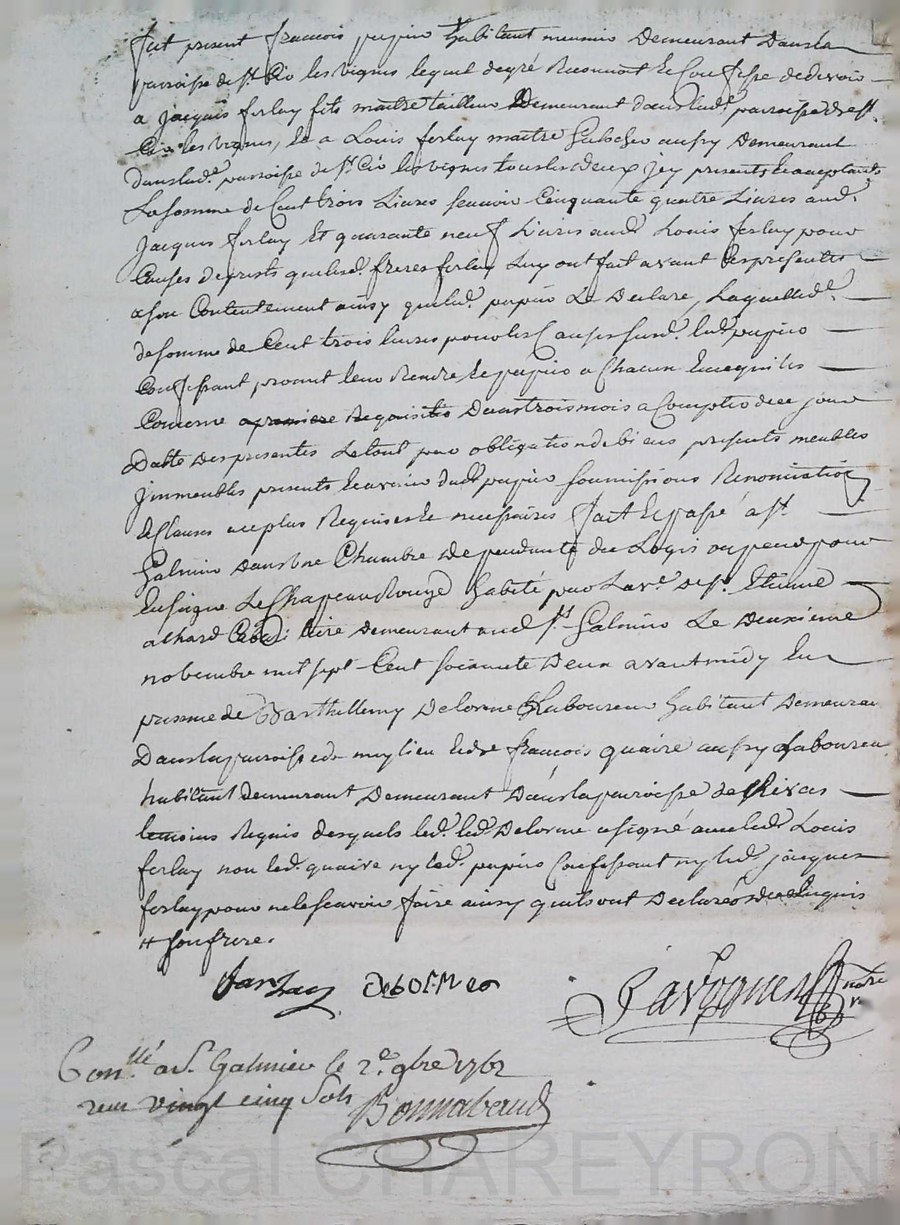 fut present francois pupier habitant meunier Demeurant Dansla
parroisse de st. Cir les vignes lequel degré Reconnoit et Confesse dedevoir
a jacques ferlay fils maitre tailleur Demeurant danslad.e parroisse de st.
Cir les vignes, et a Louis ferlay maitre Sabotier aussy Demeurant
Danslad.e parroisse de st. Cir les vignes tous les deux jcy presents et acceptants
La somme de Cent trois Livres scavoir Cinquante quatre Livres aud.
jacques ferlay Et quarante neuf Livres aud. Louis ferlay pour
Causes de prests quelesd. freres ferlay Luy ont fait avant Cespresentes
a son Contentement ainsy queled. pupier Le Declare, Laquelled.e
de somme de Cent trois livres pour les Causes susd. led. pupier
Confessant promet leur Rendre, et payer a Chacun Encequi les
Concerne apremiere Requisition Dans trois mois a Compter de ce jour
Datte Des presentes Le tout pour obligation de biens presents meubles
jmmeubles presents et avenir dud. pupier soumissions Renonciations
et Clauses aceplus Requises et necessaires fait et passé a st.
Galmier Dans une Chambre Dependante du Logis ou pend pour
Enseigne Le Chapeau Rouge habité par La ve. de sr. Etienne
achard Demeurant aud. st. Galmier Le Deuxieme
novembre mil sept Cent soixante Deux avant midy En
presence de Barthellemy Delorme Laboureur habitant Demeurant
Dans la parroisse de meylieu et de francois quaire aussy Laboureur
habitant demeurant Demeurant Dans la parroisse de Rivas
temoins Requis desquels led. led. Delorme a signé avec led. Louis
ferlay non led. quaire ny led. pupier Confessant ny led. jacques
ferlay pour ne le scavoir faire ainsy quils ont Declarés de ce Enquis
# son frere.
ferlay Delorme
Ravognen notre r.
Conllé a St. Galmier le 2.e 9bre 1762
reçu vingt cinq sols Bonnabaud
Pascal CHAREYRON